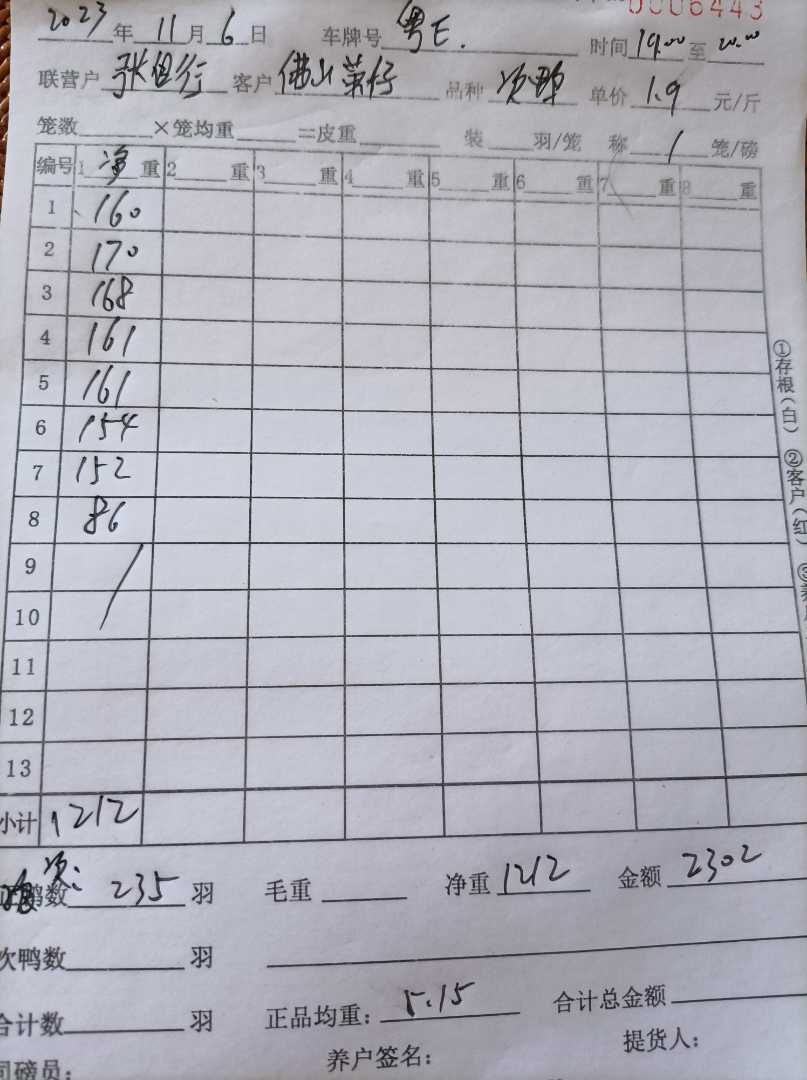 0006443
2023年11月6日 车牌号 粤E. 时间19:00至20:00
联营户 客户 佛山 品种 单价 1.9 元/斤
笼数 ×笼均重 =皮重 装 羽/笼 称 1 笼/磅
编号 1 净 重 2 重 3 重 4 重 5 重 6 重 7 重 8 重
1 160
2 170
3 168
4 161
5 161
6 154
7 152
8 86
9
10
11
12
13
小计 1212
鸭数 235 羽 毛重 净重 1212 金额 2302
次鸭数 羽
合计数 羽 正品均重: 5.15 合计总金额
司磅员: 养户签名: 提货人:
①存根(白) ②客户(红) ③